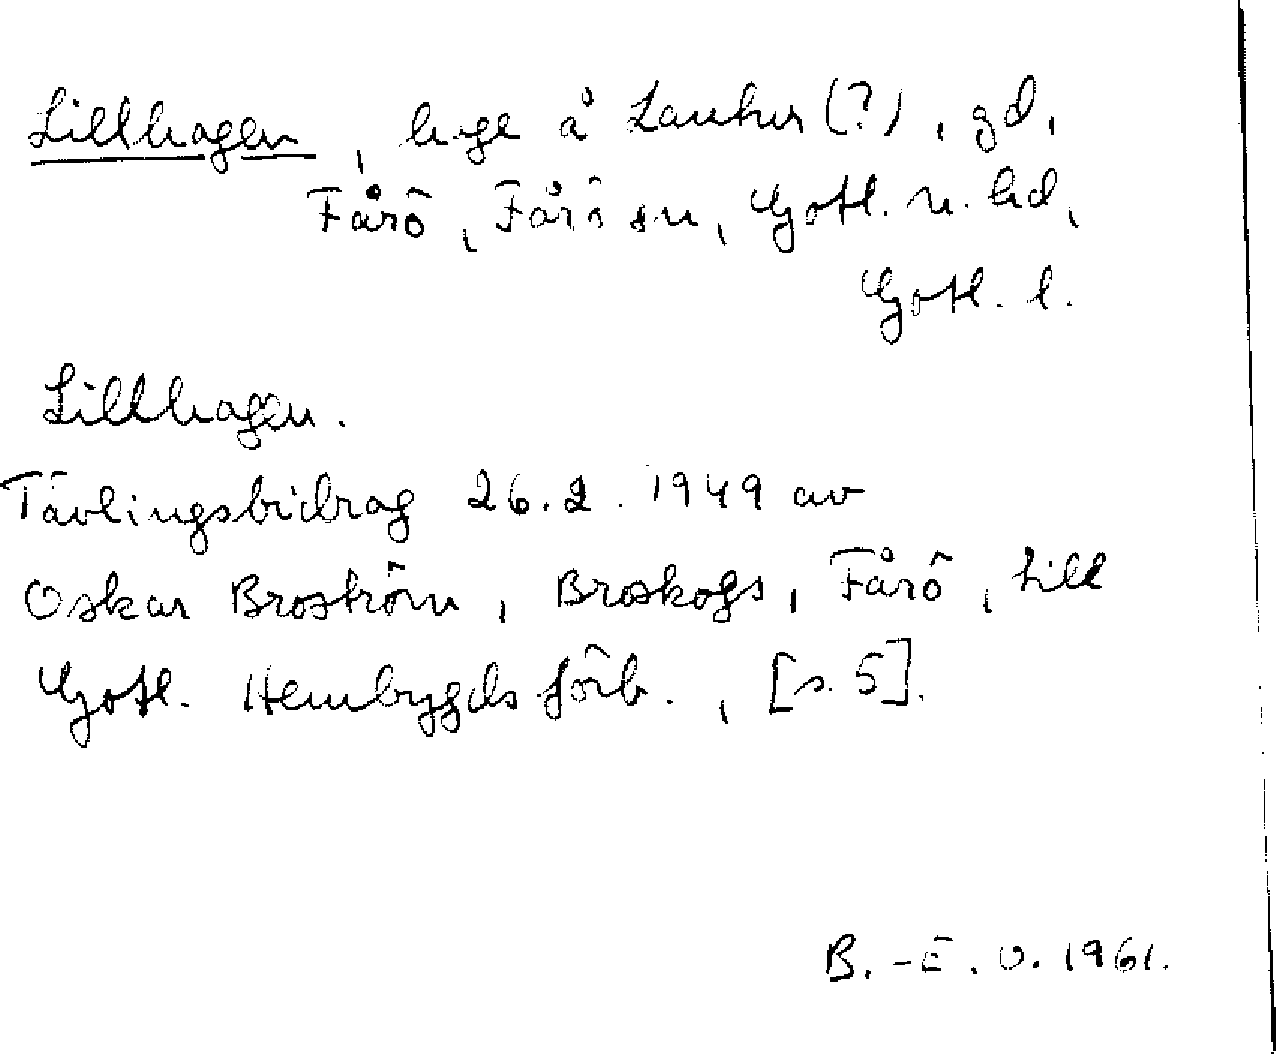 Lillhagen, hage å Lauters (?), gd,
Fårö, Fårö sn, Gotl. n. hd,
Gotl. l.
Lillhagen.
Tävlingsbidrag 26.2.1949 av
Oskar Broström, Broskogs, Fårö, till
Gotl. Hembygdsförb., [s. 5].
B.-E. O. 1961.